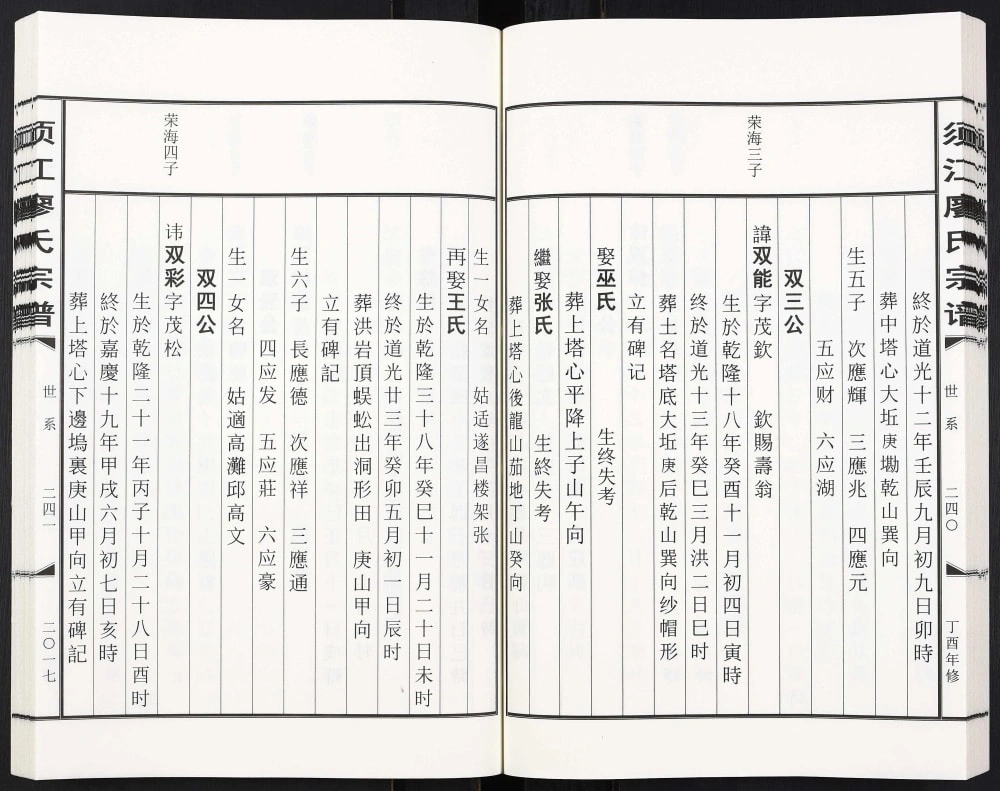 须江廖氏宗谱
世系
二四〇
丁酉年修
荣海三子
終於道光十二年壬辰九月初九日卯時
葬中塔心大坵庚墈乾山巽向
生五子 次應輝 三應兆 四應元
五应财 六应湖
双三公
諱双能字茂欽 欽賜壽翁
生於乾隆十八年癸酉十一月初四日寅時
终於道光十三年癸巳三月洪二日巳时
葬土名塔底大坵庚后乾山巽向纱帽形
立有碑记
娶巫氏 生终失考
葬上塔心平降上子山午向
繼娶张氏 生終失考
葬上塔心後龍山茄地丁山癸向
荣海四子
生一女名 姑适遂昌楼架张
再娶王氏
生於乾隆三十八年癸巳十一月二十日未时
终於道光廿三年癸卯五月初一日辰时
葬洪岩頂蜈蚣出洞形田 庚山甲向
立有碑記
生六子 長應德 次應祥 三應通
四应发 五应莊 六应豪
生一女名 姑適高灘邱高文
双四公
讳双彩字茂松
生於乾隆二十一年丙子十月二十八日酉时
終於嘉慶十九年甲戌六月初七日亥時
葬上塔心下邊塢裏庚山甲向立有碑記
须江廖氏宗谱
世系
二四一
二〇一七